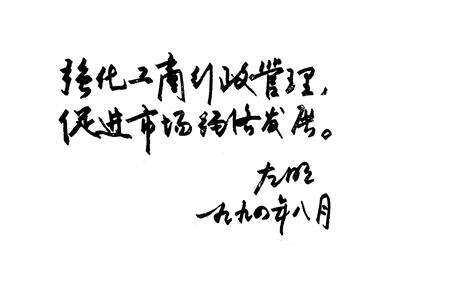 强化工商行政管理,
促进市场经济发展。
左明
一九九四年八月